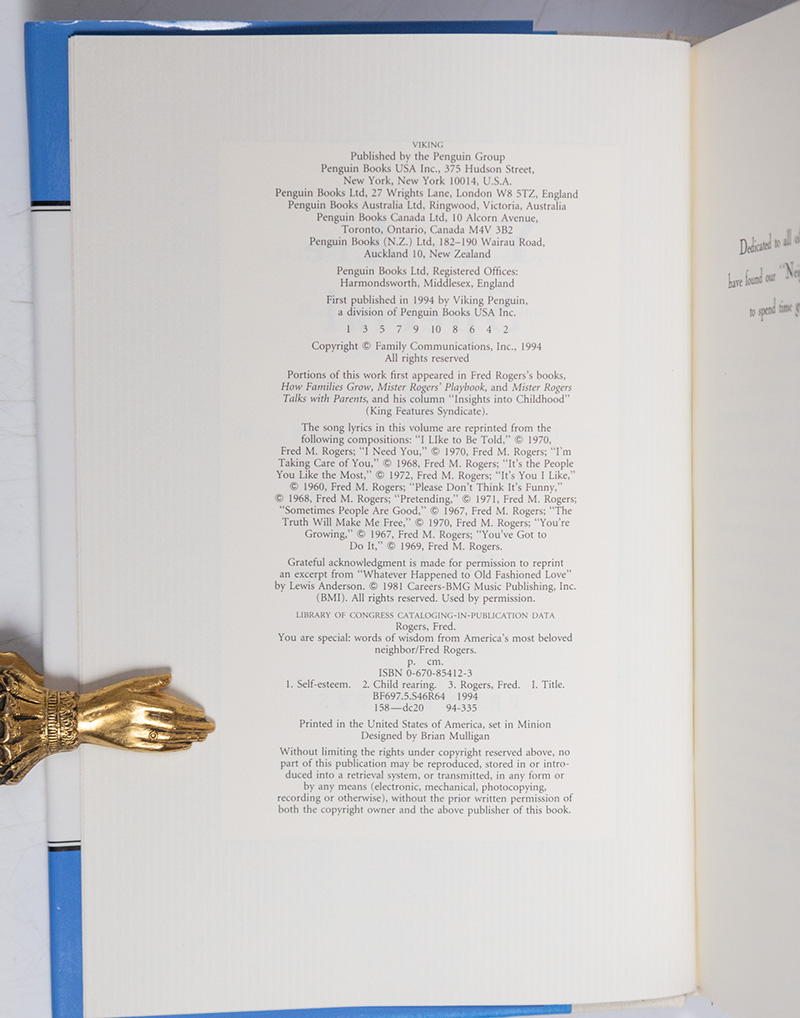 VIKING
Published by the Penguin Group
Penguin Books USA Inc., 375 Hudson Street,
New York, New York 10014, U.S.A.
Penguin Books Ltd, 27 Wrights Lane, London W8 5TZ, England
Penguin Books Australia Ltd, Ringwood, Victoria, Australia
Penguin Books Canada Ltd, 10 Alcorn Avenue,
Toronto, Ontario, Canada M4V 3B2
Penguin Books (N.Z.) Ltd, 182–190 Wairau Road,
Auckland 10, New Zealand
Penguin Books Ltd, Registered Offices:
Harmondsworth, Middlesex, England
First published in 1994 by Viking Penguin,
a division of Penguin Books USA Inc.
1 3 5 7 9 10 8 6 4 2
Copyright © Family Communications, Inc., 1994
All rights reserved
Portions of this work first appeared in Fred Rogers's books,
How Families Grow, Mister Rogers' Playbook, and Mister Rogers
Talks with Parents, and his column "Insights into Childhood"
(King Features Syndicate).
The song lyrics in this volume are reprinted from the
following compositions: "I LIke to Be Told," © 1970,
Fred M. Rogers; "I Need You," © 1970, Fred M. Rogers; "I'm
Taking Care of You," © 1968, Fred M. Rogers; "It's the People
You Like the Most," © 1972, Fred M. Rogers; "It's You I Like,"
© 1960, Fred M. Rogers; "Please Don't Think It's Funny,"
© 1968, Fred M. Rogers; "Pretending," © 1971, Fred M. Rogers;
"Sometimes People Are Good," © 1967, Fred M. Rogers; "The
Truth Will Make Me Free," © 1970, Fred M. Rogers; "You're
Growing," © 1967, Fred M. Rogers; "You've Got to
Do It," © 1969, Fred M. Rogers.
Grateful acknowledgment is made for permission to reprint
an excerpt from "Whatever Happened to Old Fashioned Love"
by Lewis Anderson. © 1981 Careers-BMG Music Publishing, Inc.
(BMI). All rights reserved. Used by permission.
LIBRARY OF CONGRESS CATALOGING-IN-PUBLICATION DATA
Rogers, Fred.
You are special: words of wisdom from America's most beloved
neighbor/Fred Rogers.
p. cm.
ISBN 0-670-85412-3
1. Self-esteem. 2. Child rearing. 3. Rogers, Fred. I. Title.
BF697.5.S46R64 1994
158—dc20 94-335
Printed in the United States of America, set in Minion
Designed by Brian Mulligan
Without limiting the rights under copyright reserved above, no
part of this publication may be reproduced, stored in or intro-
duced into a retrieval system, or transmitted, in any form or
by any means (electronic, mechanical, photocopying,
recording or otherwise), without the prior written permission of
both the copyright owner and the above publisher of this book.
Dedicated to all
have found our
to spend time